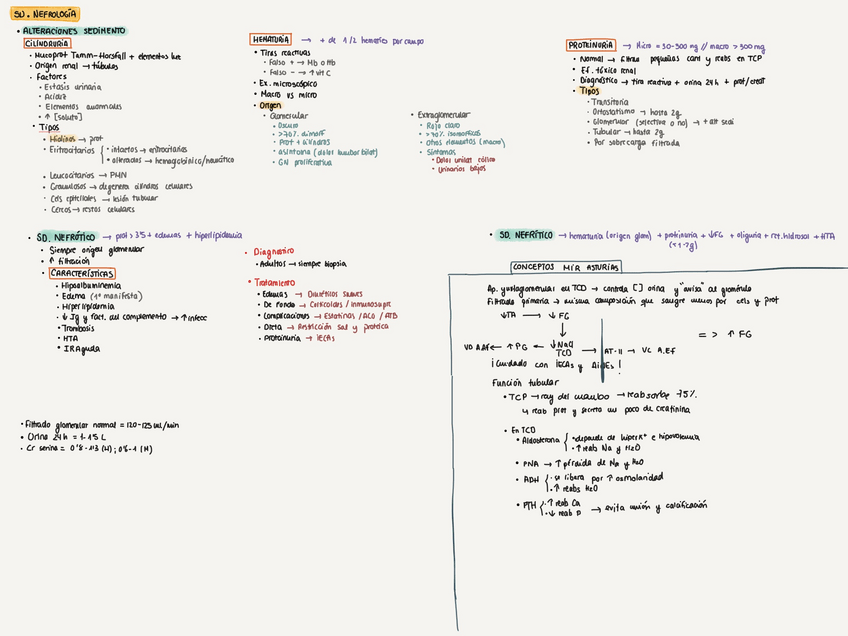 SD. NEFROLOGÍA
• ALTERACIONES SEDIMENTO
CILINDRURIA
• Mucoprot Tamm-Horsfall + elementos
• Origen renal → túbulos
• Factores
• Estasis urinaria
• Acidez
• Elementos anormales
• ↑ [soluto]
• Tipos
• Hialinos → prot
• Eritrocitarios { • intactos → eritrocitarios
• alterados → hemoglobínico/hemático
• Leucocitarios → PMN
• Granulosos → degenera cilindros celulares
• Cels epiteliales → lesión tubular
• Céreos → restos celulares
HEMATURIA → + de 1/2 hematíes por campo
• Tiras reactivas
• Falso + → Mb o Hb
• Falso - → ↑ vit C
• Ex. microscópico
• Macro vs micro
• Origen
• Glomerular
• Oscuro
• >70% dismorf
• Prot + cilindros
• asíntoma (dolor lumbar bilat)
• GN proliferativa
• Extraglomerular
• Rojo claro
• >70% isomórficos
• Otros elementos (macro)
• Síntomas
• Dolor unilat cólico
• Urinarios bajos
PROTEINURIA → Micro = 30-300 mg // macro > 300 mg
• Normal → filtra pequeñas cant y reabs en TCP
• Ef. tóxico renal
• Diagnóstico → tira reactiva + orina 24h + prot/creat
• Tipos
• Transitoria
• Ortostatismo → hasta 2g
• Glomerular (selectiva o no) → + alt sedi
• Tubular → hasta 2g
• Por sobrecarga filtrada
• SD. NEFRÓTICO → prot > 3'5 + edemas + hiperlipidemia
• Siempre origen glomerular
• ↑ filtración
• CARACTERÍSTICAS
• Hipoalbuminemia
• Edema (1ª manifesta)
• Hiperlipidemia
• ↓ Ig y fact. del complemento → ↑ infecc
• Trombosis
• HTA
• IR Aguda
• Diagnóstico
• Adultos → siempre biopsia
• Tratamiento
• Edemas → Diuréticos suaves
• De fondo → Corticoides / Inmunosupr.
• Complicaciones → Estatinas / ACO / ATB
• Dieta → Restricción sal y proteica
• Proteinuria → IECAs
• Filtrado glomerular normal = 120-125 ml/min
• Orina 24h = 1-1.5 L
• Cr sérica = 0'8-1'3 (H); 0'6-1 (M)
• SD. NEFRÍTICO → hematuria (origen glom) + proteinuria + ↓FG + oliguria + ret. hidrosal + HTA
CONCEPTOS MIR ASTURIAS
Ap. yuxtaglomerular en TCD → controla [ ] orina y "avisa" al glomérulo
Filtrado primario → misma composición que sangre menos por cels y prot
↓TA → ↓ FG
↓
VD A.Af ← ↑ PG ← ↓ NaCl TCD → AT-II → VC A.Ef
=> ↑ FG
¡Cuidado con IECAs y AINEs!
Función tubular
• TCP → ray del mambo → reabsorbe 75%.
↳ reab prot y secreta un poco de creatinina
• En TCD
• Aldosterona { • depende de hiperK⁺ e hipovolemia
• ↑ reab Na y H₂O
• PNA → ↑ pérdida de Na y H₂O
• ADH { • se libera por ↑ osmolaridad
• ↑ reabs H₂O
• PTH { • ↑ reab Ca
• ↓ reab P → evita unión y calcificación